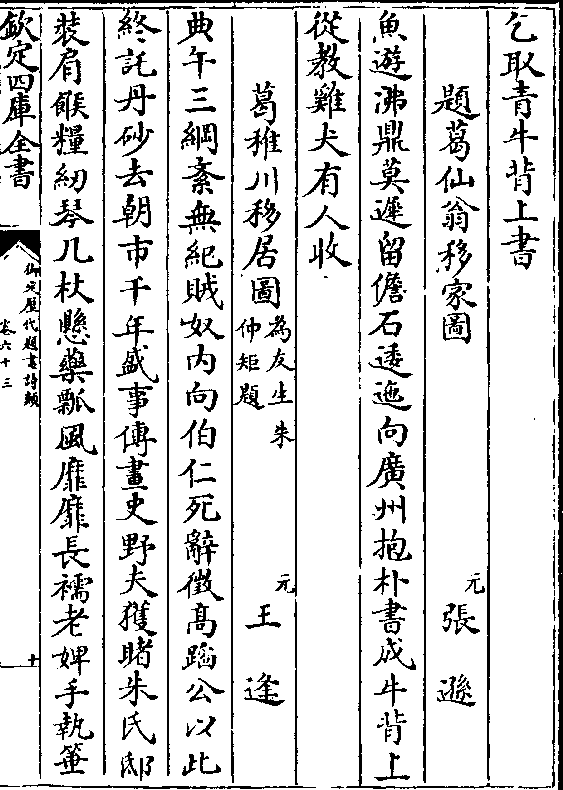 乞取青牛背上書
題葛仙翁移家圖
元張遜
魚遊沸鼎莫遲留儋石逶迤向廣州抱朴書成牛背上
從教雞犬有人收
葛稚川移居圖為友生朱仲矩題
元王逢
典午三綱紊無紀賊奴内向伯仁死辭徵高蹈公以此
終託丹砂去朝市千年盛事傳畫史野夫獲睹朱氏邸
裝肩餱糧紉琴几杖懸藥瓢風靡靡長襦老婢手執箠
欽定四庫全書
御定歷代題畫詩類
卷六十三
十